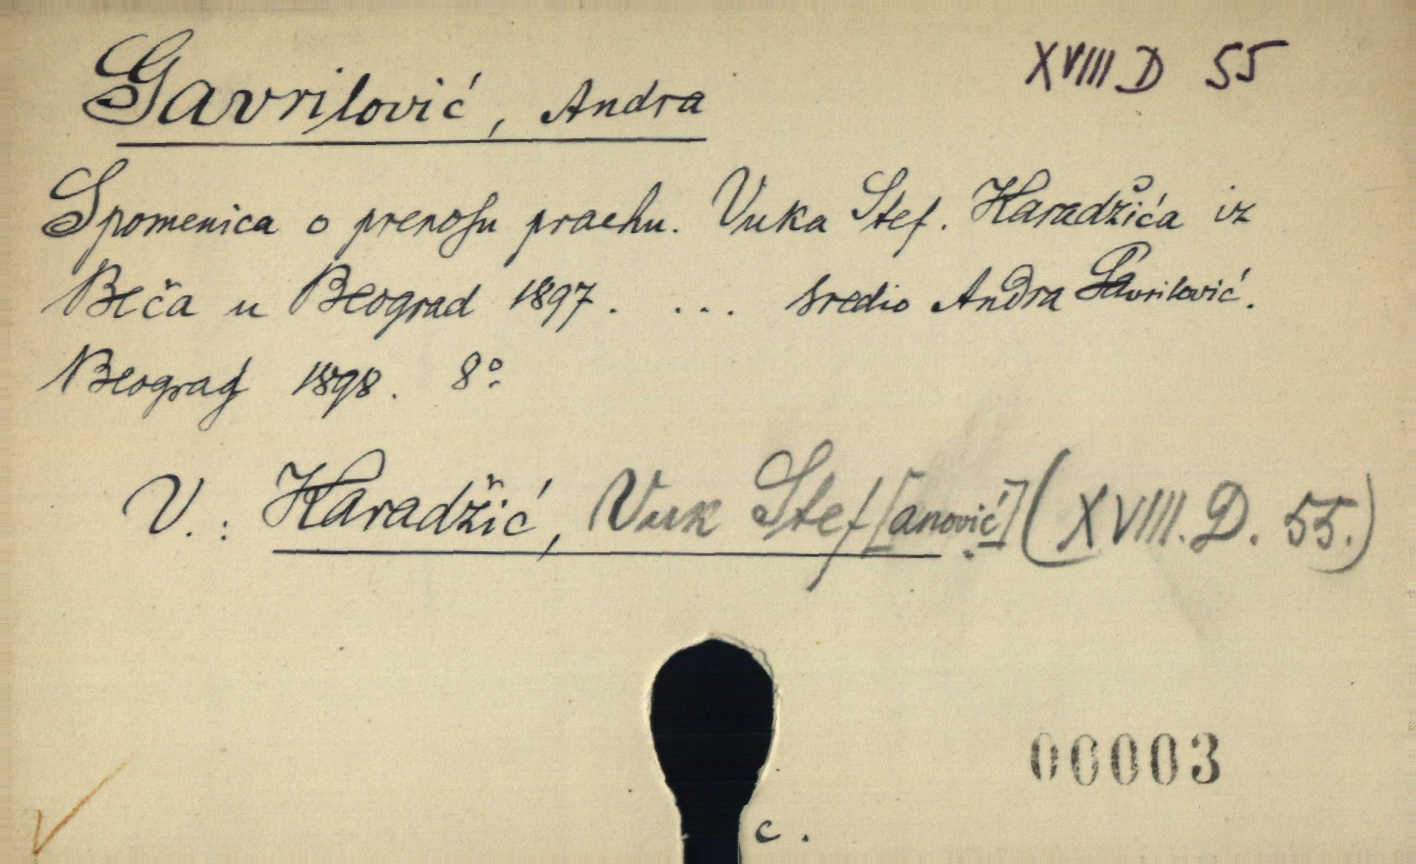 XVIII D 55
Gavrilović, Andra
Spomenica o prenosu prachu. Vuka Stef. Karadžića iz
Beča u Beograd 1897. ... sredio Andra Gavrilović.
Beograd 1898. 8°.
V.: Karadžić, Vuk Stef[anović] (XVIII. D. 55.)
00003
c.